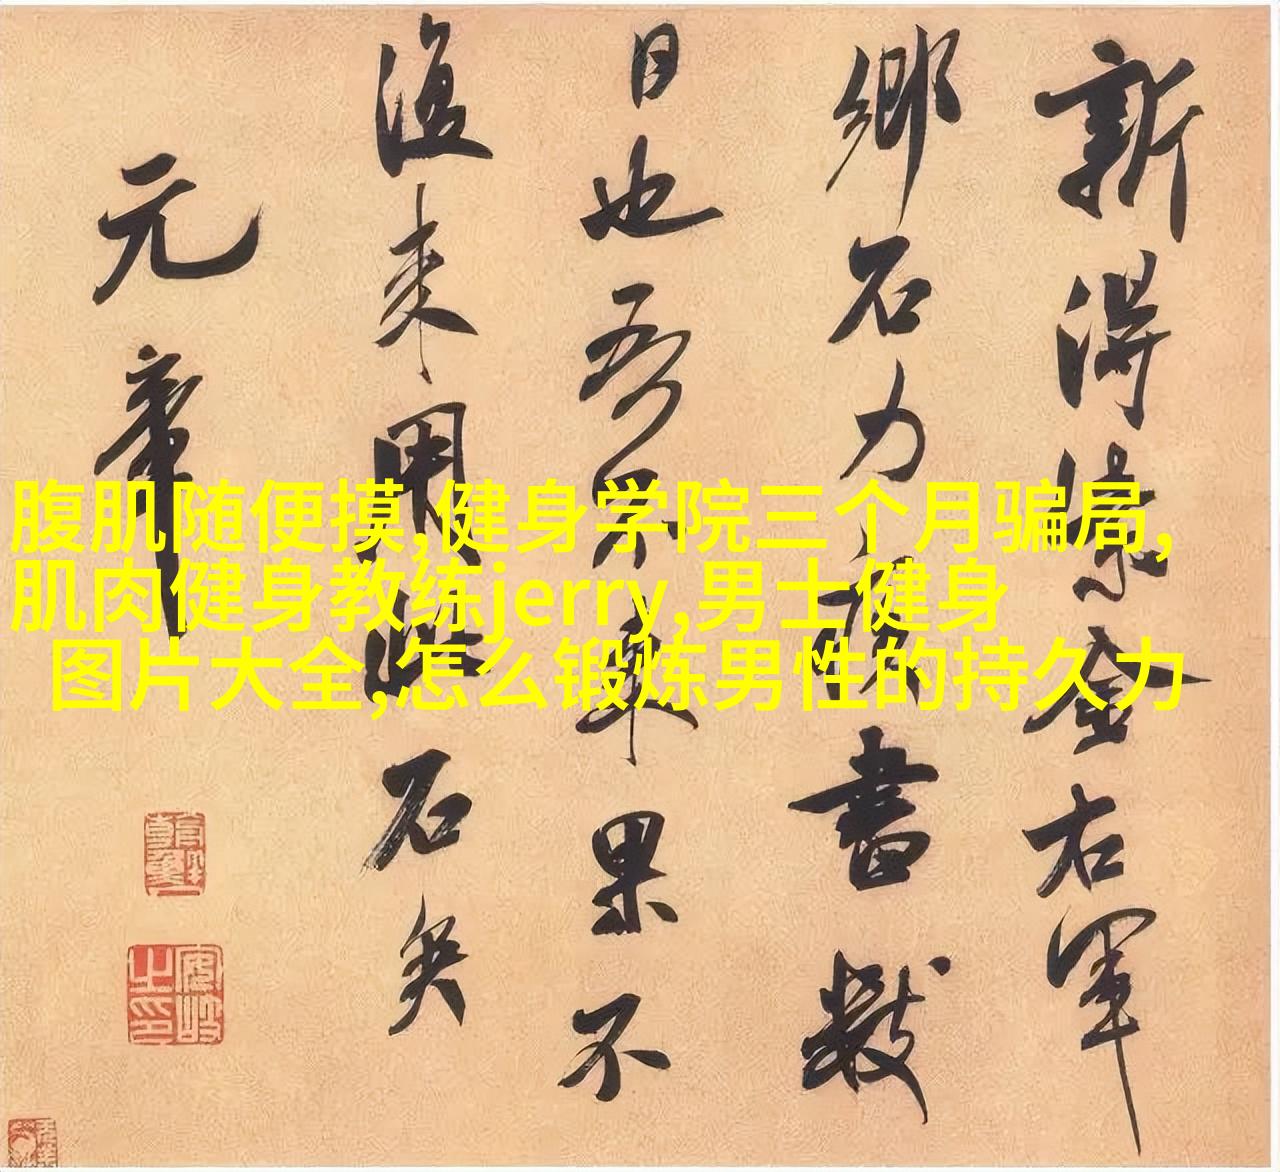 新得紫金右軍
鄉石力疾書數
日也吾不来果不
復来用此石矣
元章
腹肌随便摸,健身学院三个月骗局,
肌肉健身教练jerry,男士健身
图片大全,怎么锻炼男性的持久力